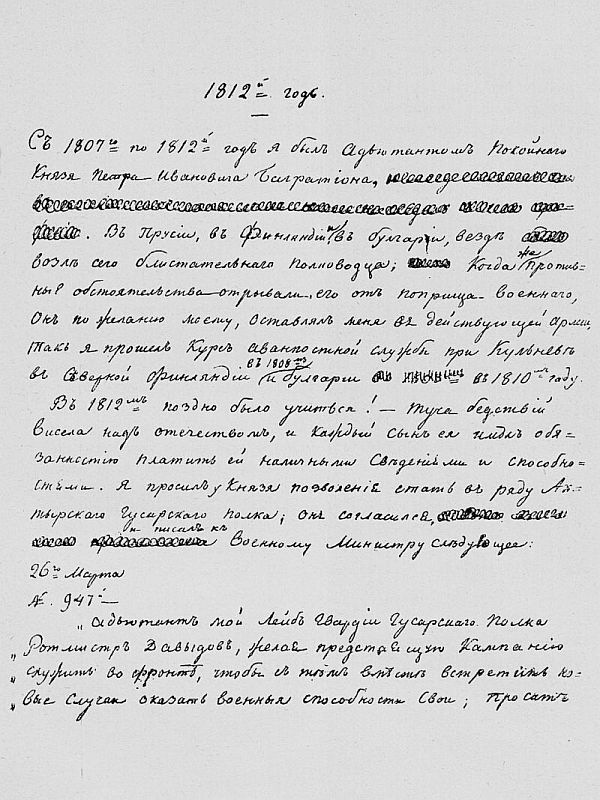 1812й годъ.
Съ 1807го по 1812й годъ я былъ Адъютантомъ Покойнаго
Князя Петра Ивановича Багратіона,
Въ Прусіи, въ Финляндіи, въ Булгаріи, вездѣ
возлѣ сего блистательнаго полководца; Когда же Против-
ныѣ обстоятельства отрывали его отъ поприща военнаго,
Онъ по желанію моему, оставлялъ меня въ действующей Арміи,
такъ я прошелъ Курсъ аванпостной службы при Кульневѣ
въ 1808мъ
въ Северной Финляндіи и Булгаріи въ 1810мъ году.
Въ 1812мъ поздно было учиться! — Туча бедствій
висела надъ отечествомъ, и Каждый сынъ ея обя=
занностію платить ей наличными Сведеніями и способно=
стями. Я просилъ у Князя позволенія стать въ ряду Ах=
тырскаго Гусарскаго полка; онъ согласился,
и писалъ къ
Военному Министру следующее:
26го Марта
№. 947 —
„Адъютантъ мой Лейбъ Гвардіи Гусарскаго Полка
„Ротмистръ Давыдовъ, желая предстоящую Кампанію
„служить во фронтѣ, чтобы съ тѣмъ вместѣ встретить но=
„вые случаи оказать военныя способности Свои; Проситъ